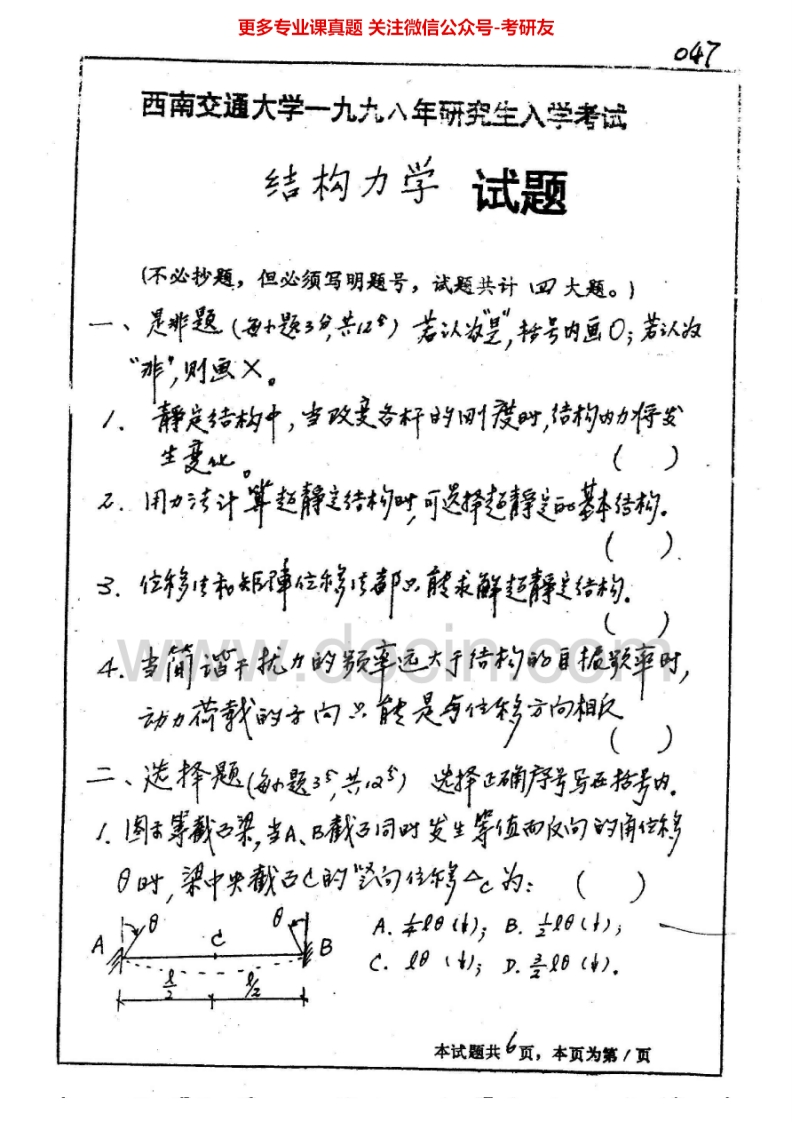 更多专业课真题 关注微信公众号-考研友
047
西南交通大学一九九八年研究生入学考试
结构力学 试题
(不必抄题，但必须写明题号，试题共计 四 大题。)
一、是非题(每小题3分,共12分) 若认为"是",括号内画O;若认为
"非",则画×。
1. 静定结构中,当改变各杆的刚度时,结构内力将发
生变化。 ( )
2. 用力法计算超静定结构时,可选择超静定的基本结构。
( )
3. 位移法和矩阵位移法都只能求解超静定结构。
( )
www.docin.com
4. 当简谐干扰力的频率远大于结构的自振频率时,
动力荷载的方向只能是与位移方向相反
( )
二、选择题(每小题3分,共12分) 选择正确序号写在括号内。
1. 图示等截面梁,当A、B截面同时发生等值而反向的角位移
θ时,梁中央截面C的竖向位移△c为: ( )
A. ¼lθ(↓); B. ½lθ(↓);
C. lθ(↓); D. 3/2lθ(↓).
A θ C θ B
l/2 l/2
本试题共6页，本页为第1页